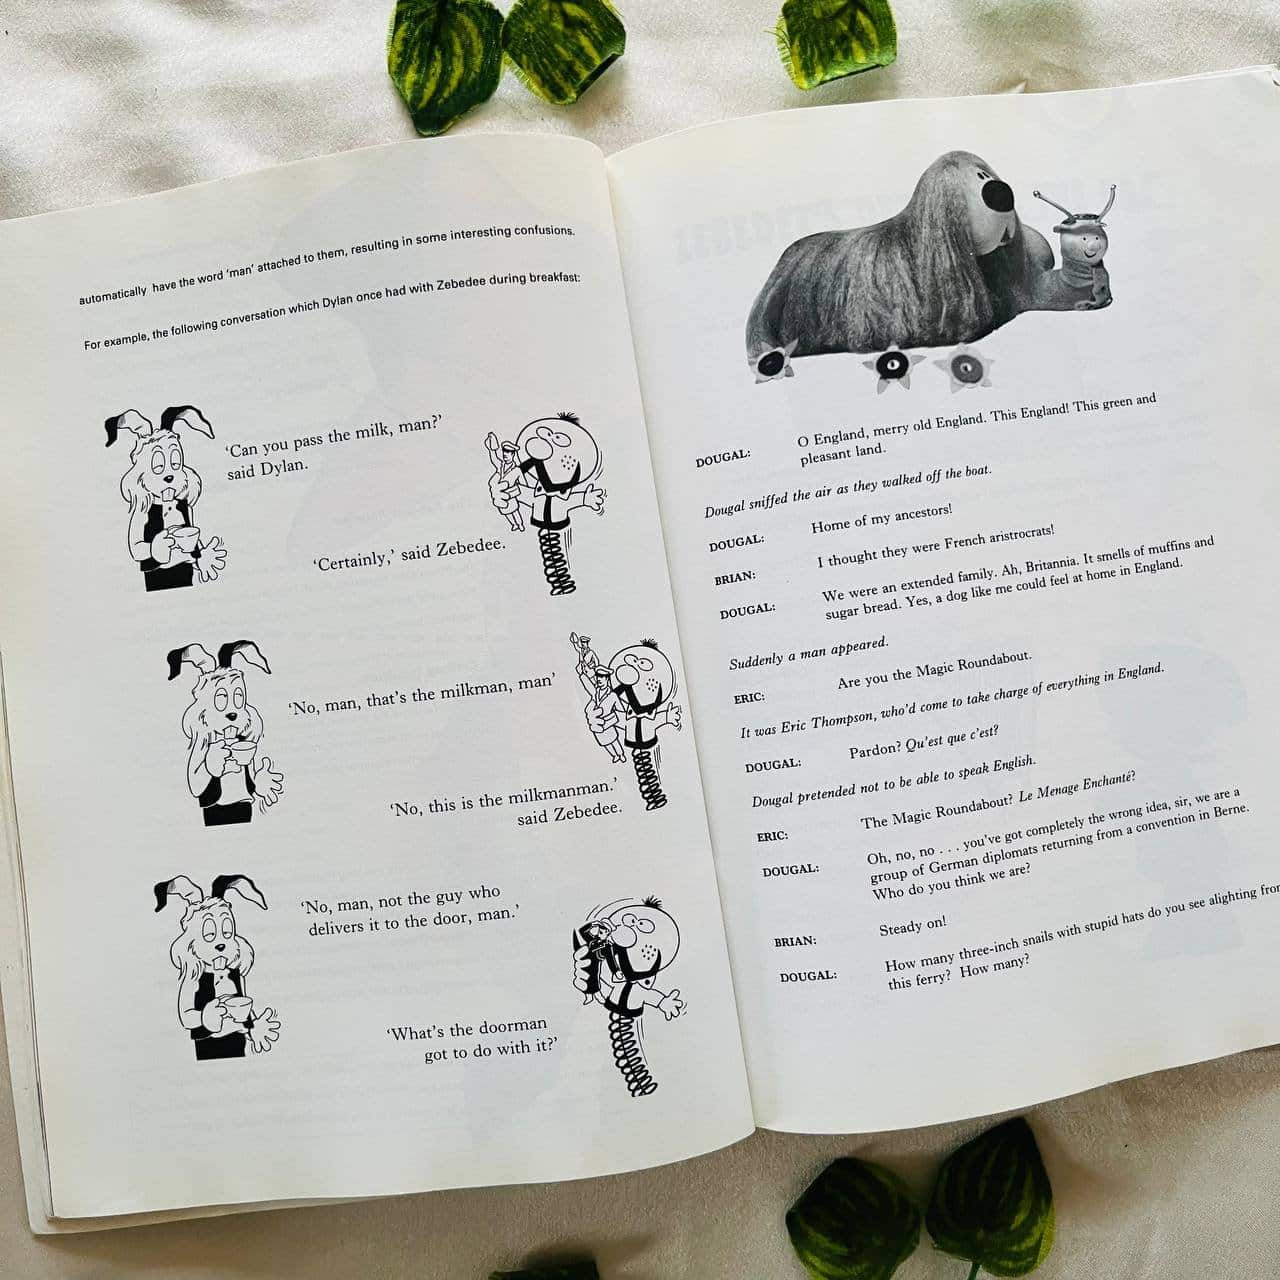 automatically have the word 'man' attached to them, resulting in some interesting confusions.
For example, the following conversation which Dylan once had with Zebedee during breakfast:
'Can you pass the milk, man?'
said Dylan.
'Certainly,' said Zebedee.
'No, man, that's the milkman, man'
'No, this is the milkmanman.'
said Zebedee.
'No, man, not the guy who
delivers it to the door, man.'
'What's the doorman
got to do with it?'
DOUGAL: O England, merry old England. This England! This green and
pleasant land.
Dougal sniffed the air as they walked off the boat.
DOUGAL: Home of my ancestors!
BRIAN: I thought they were French aristocrats!
DOUGAL: We were an extended family. Ah, Britannia. It smells of muffins and
sugar bread. Yes, a dog like me could feel at home in England.
Suddenly a man appeared.
ERIC: Are you the Magic Roundabout.
It was Eric Thompson, who'd come to take charge of everything in England.
DOUGAL: Pardon? Qu'est que c'est?
Dougal pretended not to be able to speak English.
ERIC: The Magic Roundabout? Le Menage Enchanté?
DOUGAL: Oh, no, no . . . you've got completely the wrong idea, sir, we are a
group of German diplomats returning from a convention in Berne.
Who do you think we are?
BRIAN: Steady on!
DOUGAL: How many three-inch snails with stupid hats do you see alighting from
this ferry? How many?